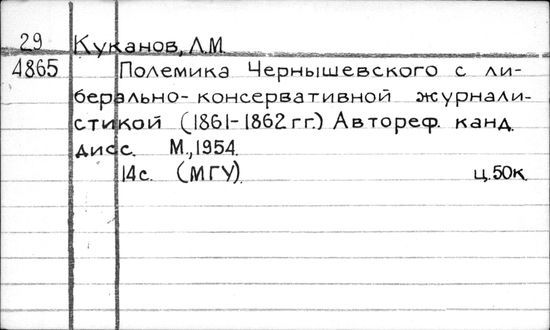 29 Куканов, Л.М.
4865 Полемика Чернышевского с ли-
берально-консервативной журнали-
стикой (1861-1862 гг.) Автореф. канд.
дисс. М., 1954.
14с. (МГУ). ц.50к.